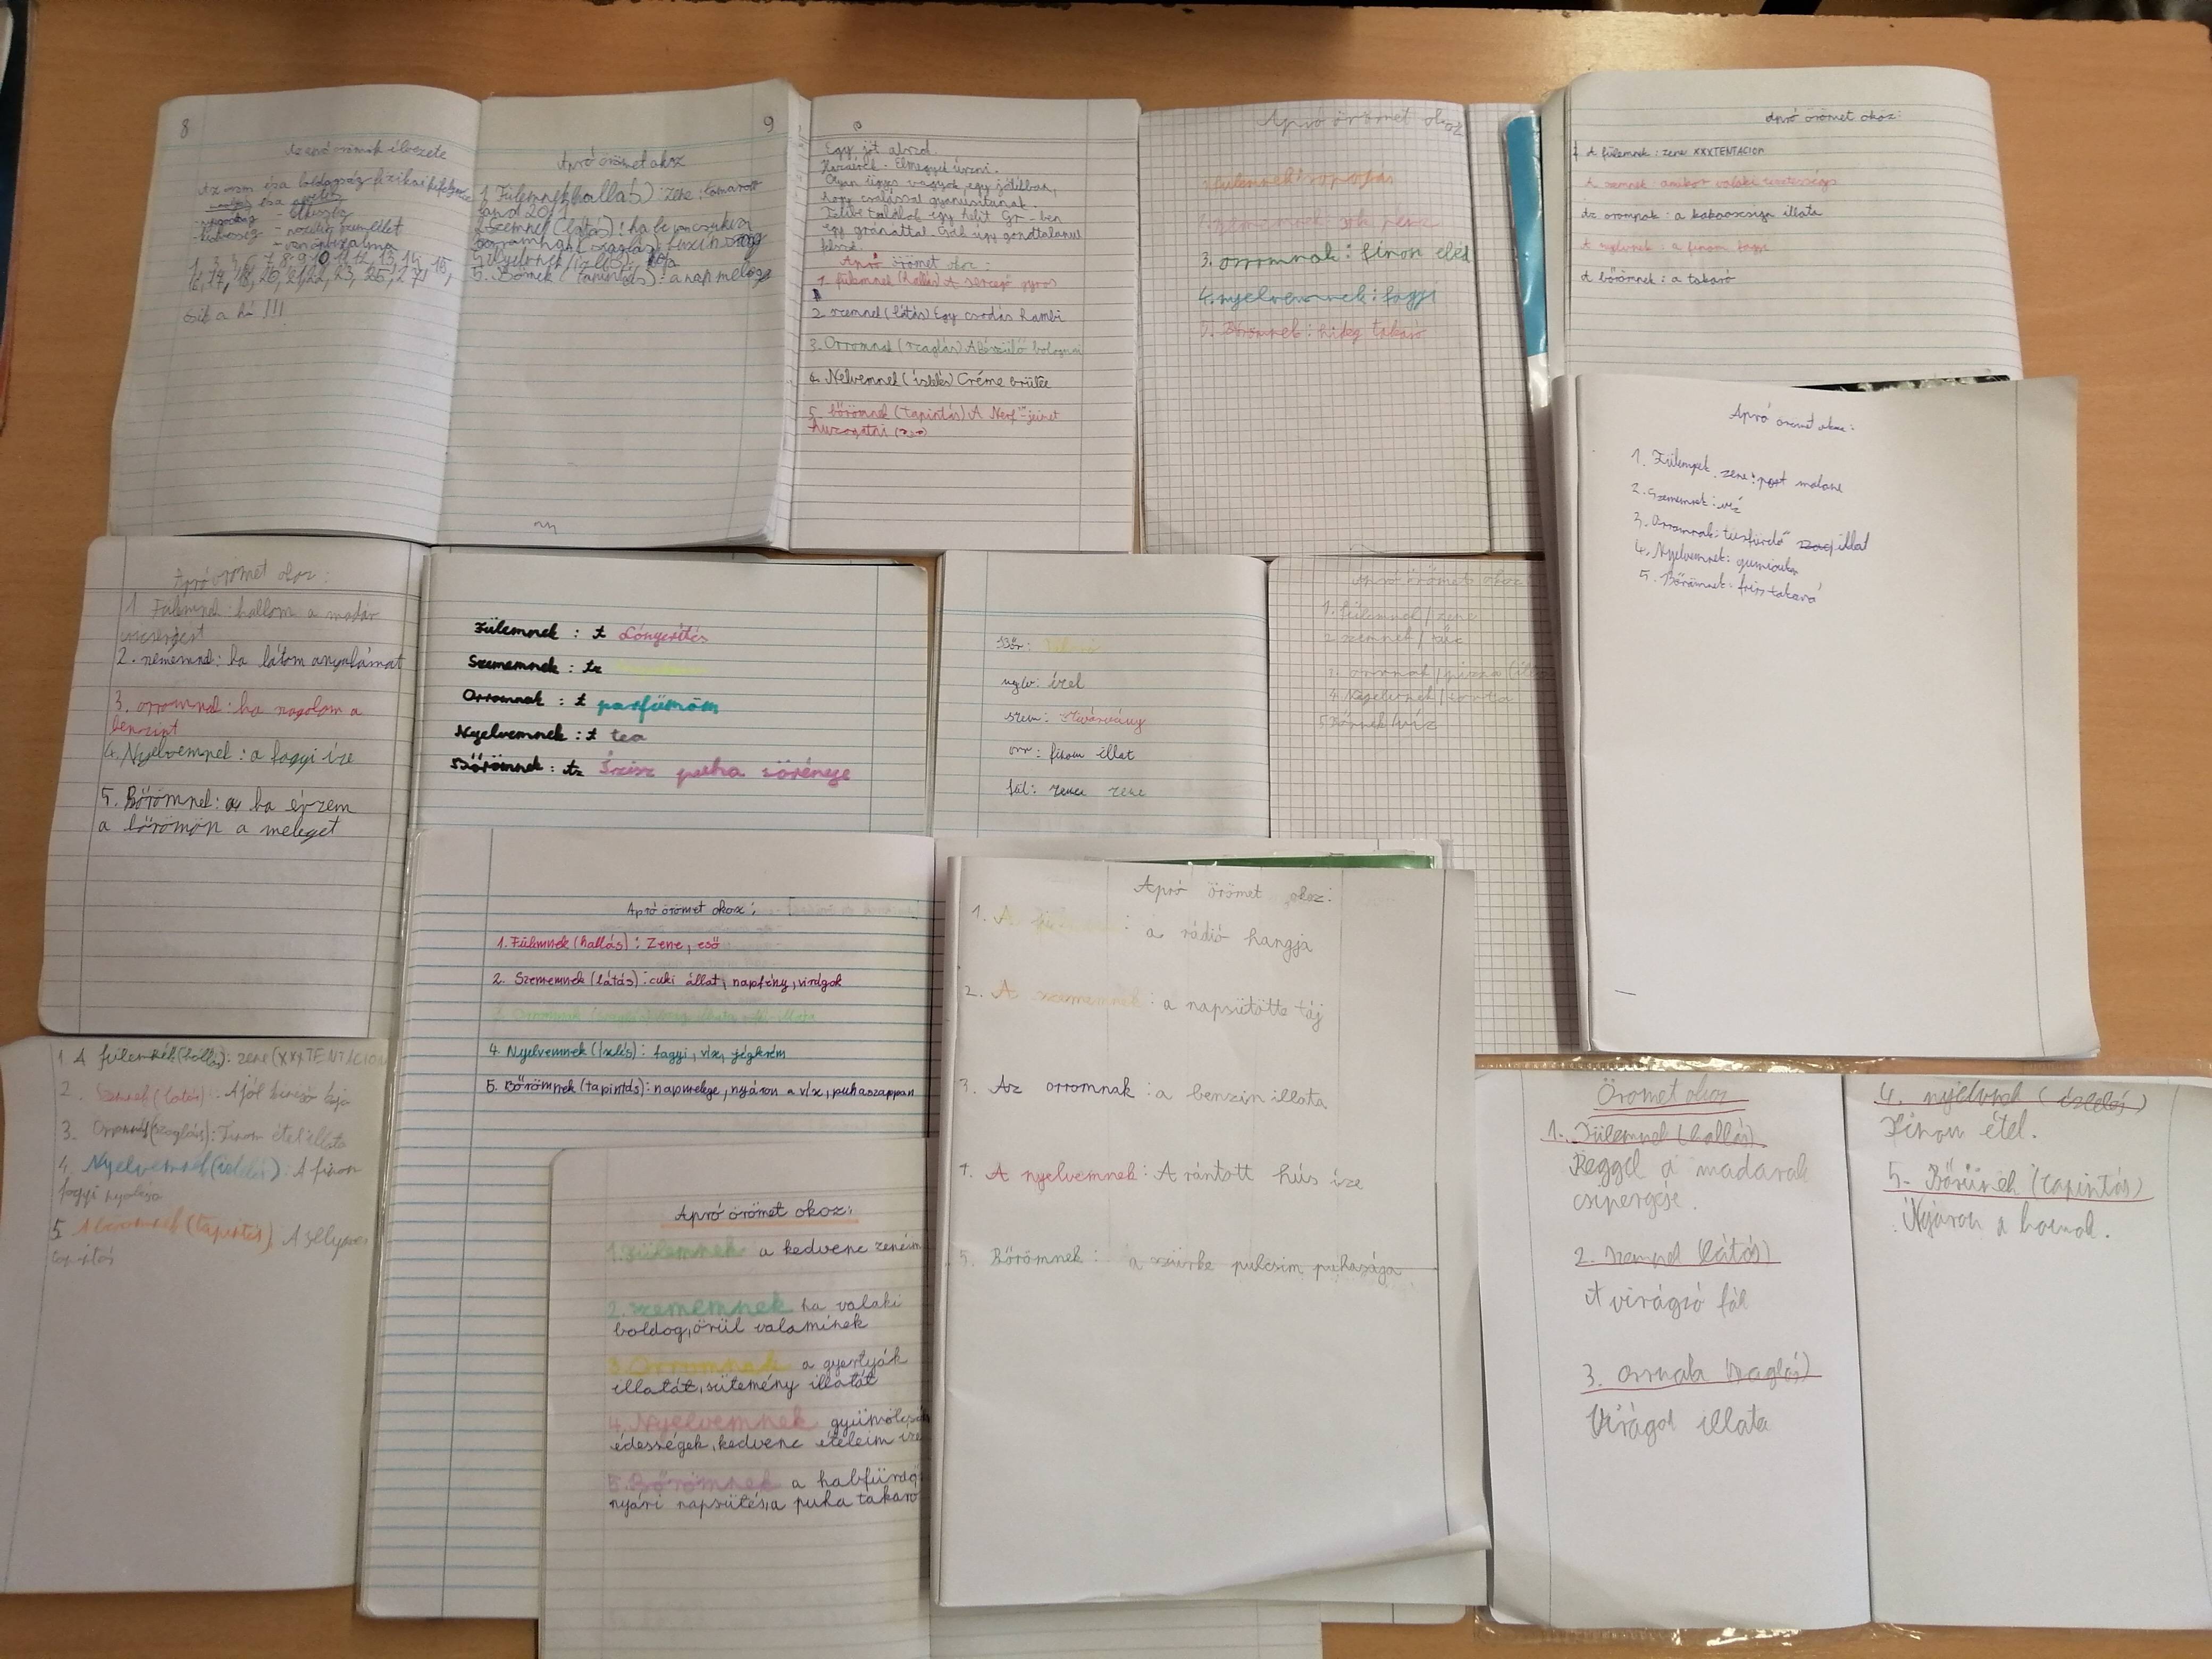 8
Az apró örömök élvezete
Az öröm és a boldogság fizikai
- nevetés
16, 17, 18, 20, 21, 22, 23, 25, 27
esik a hó !!!
9
Apró örömet okoz
1. Fülemnek (hallás): zene: tomorrow
2. Szemnek (látás): ha becsukom
5. Bőrnek (tapintás): a nap melege
Egy jót alszol.
Olyan ügyes vagyok egy játékban,
hogy csalással gyanusítanak.
Telibe találok egy helit Gr-ben
egy gránáttal.
Apró örömet okoz:
1. fülemnek (hallás) A sercegő gyros
2. szemnek (látás) Egy csodás hambi
3. Orromnak (szaglás) A készülő bolognai
4. Nelvemnek (ízlelés) Créme brülée
5. bőrömnek (tapintás) A Nerf™-jeimet
huzogatni
Apró örömet okoz
1. fülemnek:
3. orromnak: finom eléd
4. nyelvemnek: fagyi
5. Bőrömnek: hideg takaró
Apró örömet okoz:
1 A fülemnek: zene XXXTENTACION
A szemnek: amikor valaki
Az orromnak: a kakaoscsiga illata
A nyelvnek: a finom fagyi
A bőrömnek: a takaró
Apró örömet okoz:
1. Fülemnek: zene: post malone
2. Szememnek: víz
3. Orromnak: tusfürdő illat
4. Nyelvemnek: gumicukor
5. Bőrömnek: friss takaró
Apró örömet okoz:
1. Fülemnek: hallom a madár
csicsergést
2. szememnek: ha látom anyukámat
3. orromnak: ha szagolom a
benzint
4. Nyelvemnek: a fagyi íze
5. Bőrömnek: a ha érzem
a bőrömön a meleget
Fülemnek: A Lónyerítés
Szememnek: Az
Orromnak: A parfümöm
Nyelvemnek: A tea
Bőrömnek: Az Írisz puha sörénye
Bőr:
nyelv: étel
szem: szivárvány
orr: finom illat
fül: zene
Apró örömet okoz
1. fülemnek / zene
2. szemnek / tűz
3. orrnak / pizza
5. Bőrnek / víz
Apró örömet okoz:
1. Fülemnek (hallás): Zene, eső
2. Szememnek (látás): cuki állat, napfény, virágok
3. Orromnak (szaglás): virág illata
4. Nyelvemnek (ízlelés): fagyi, víz, jégkrém
5. Bőrömnek (tapintás): napmelege, nyáron a víz, puhaszappan
Apró örömet okoz:
1. A : a rádió hangja
2. A szememnek: a napsütötte táj
3. Az orromnak: a benzin illata
4. A nyelvemnek: A rántott hús íze
5. Bőrömnek: a szürke pulcsim puhasága
1 A fülemnek (hallás): zene (XXXTENTACION
2. Szemnek (látás): A jól kinéző kaja
3. Orrnak (szaglás): Finom étel illata
4. Nyelvemnek (ízlelés): A finom
fagyi nyalása
5. A bőrömnek (tapintás) A selymes
tapintás
Apró örömet okoz:
1. Fülemnek a kedvenc zenéim
2. Szememnek ha valaki
boldog, örül valaminek
3. Orromnak a gyertyák
illatát, sütemény illatát
4. Nyelvemnek gyümölcsök
édességek, kedvenc ételeim íze
5. Bőrömnek a habfürdő
nyári napsütés, a puha takaró
Örömet okoz
1. Fülemnek (hallás)
Reggel a madarak
csipergése.
2. Szemnek (látás)
A virágzó fák
3. Orrnak (szaglás)
Virágok illata
4. nyelvnek (ízlelés)
Finom étel.
5. Bőrünek (tapintás)
Nyáron a homok.